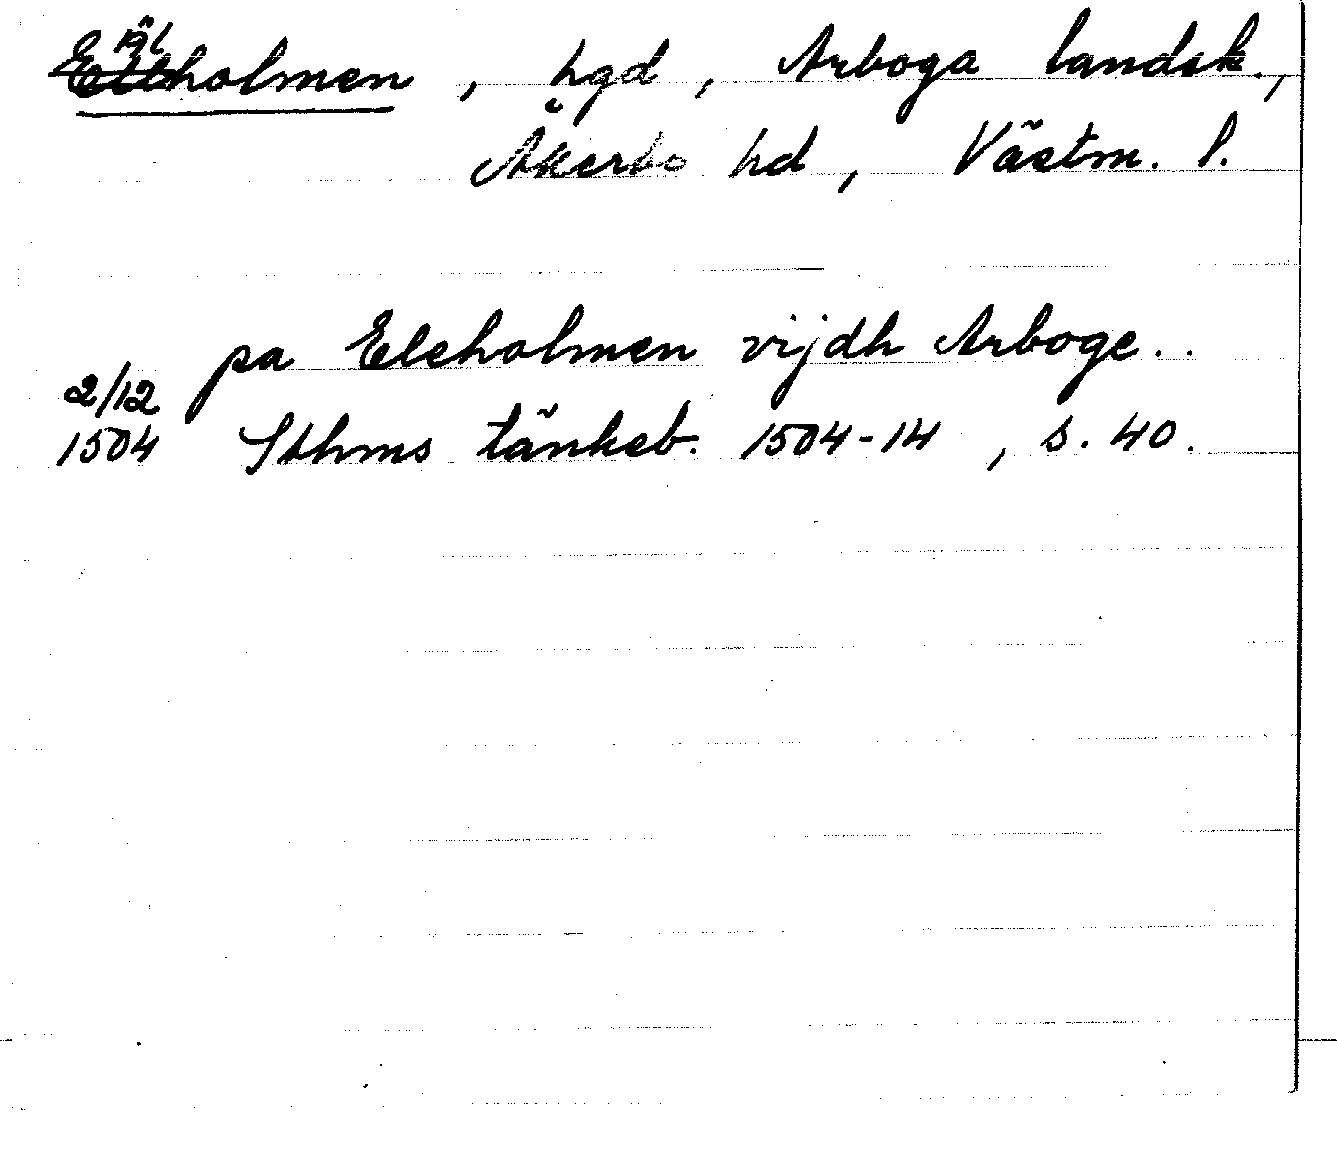 Älholmen, hgd, Arboga landsk.,
Åkerbo hd, Västm. l.
pa Eleholmen vijdh Arboge..
2/12
1504 Sthms tänkeb. 1504-14, s. 40.